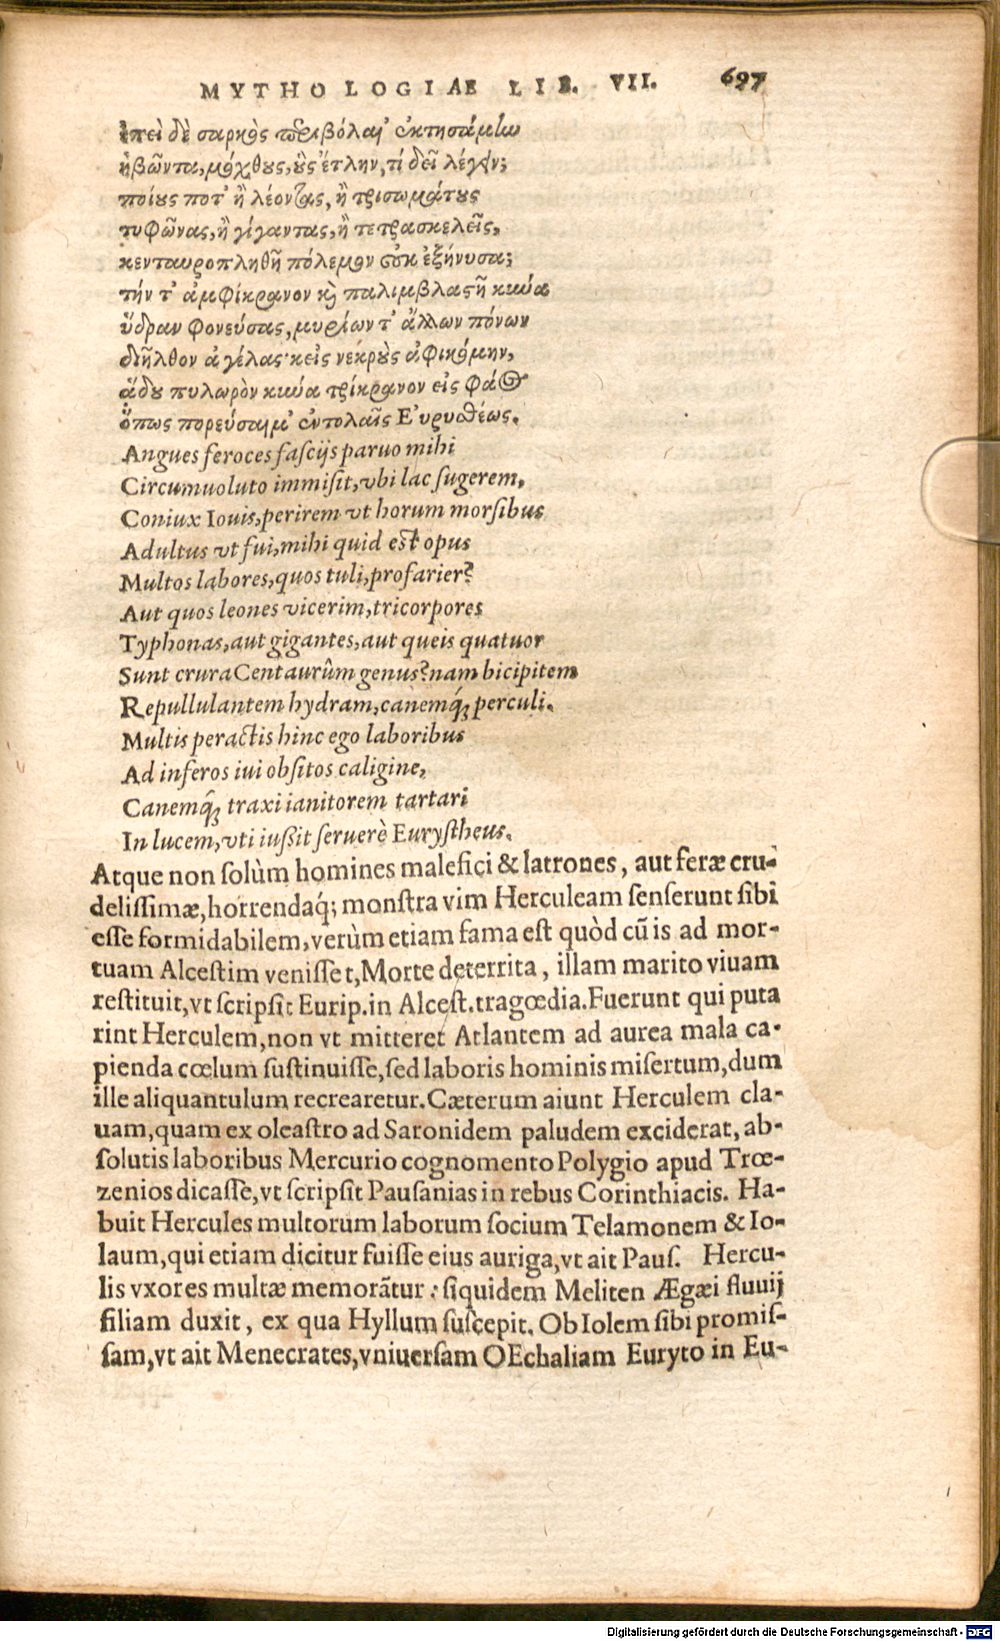 MYTHOLOGIAE LIB. VII. 697
ἐπεὶ δὲ σαρκὸς περιβόλαι' ἐκτησάμην
ἡβῶντα, μόχθους, οὓς ἔτλην, τί δεῖ λέγειν;
ποίους ποτ' ἢ λέοντας, ἢ τρισωμάτους
τυφῶνας, ἢ γίγαντας, ἢ τετρασκελεῖς,
κενταυροπληθῆ πόλεμον οὐκ ἐξήνυσα;
τήν τ' ἀμφίκρανον καὶ παλιμβλαστῆ κύνα
ὕδραν φονεύσας, μυρίων τ' ἄλλων πόνων
διῆλθον ἀγέλας· κεἰς νεκροὺς ἀφικόμην,
ἅδου πυλωρὸν κύνα τρίκρανον εἰς φάος
ὅπως πορεύσαιμ' ἐντολαῖς Εὐρυσθέως.
Angues feroces fascijs paruo mihi
Circumuoluto immisit, vbi lac sugerem,
Coniux Iouis, perirem vt horum morsibus
Adultus vt fui, mihi quid est opus
Multos labores, quos tuli, profarier?
Aut quos leones vicerim, tricorpores
Typhonas, aut gigantes, aut queis quatuor
Sunt crura Centaurûm genus? nam bicipitem
Repullulantem hydram, canemq́; perculi.
Multis peractis hinc ego laboribus
Ad inferos iui obsitos caligine,
Canemq́; traxi ianitorem tartari
In lucem, vti iußit seruerè Eurystheus.
Atque non solùm homines malefici & latrones, aut feræ cru-
delissimæ, horrendaq́; monstra vim Herculeam senserunt sibi
esse formidabilem, verùm etiam fama est quòd cũ is ad mor-
tuam Alcestim venisset, Morte deterrita, illam marito viuam
restituit, vt scripsit Eurip. in Alcest. tragœdia. Fuerunt qui puta
rint Herculem, non vt mitteret Atlantem ad aurea mala ca-
pienda cœlum sustinuisse, sed laboris hominis misertum, dum
ille aliquantulum recrearetur. Cæterum aiunt Herculem cla-
uam, quam ex oleastro ad Saronidem paludem exciderat, ab-
solutis laboribus Mercurio cognomento Polygio apud Trœ-
zenios dicasse, vt scripsit Pausanias in rebus Corinthiacis. Ha-
buit Hercules multorum laborum socium Telamonem & Io-
laum, qui etiam dicitur fuisse eius auriga, vt ait Paus. Hercu-
lis vxores multæ memorãtur: siquidem Meliten Ægæi fluuij
filiam duxit, ex qua Hyllum suscepit. Ob Iolem sibi promis-
sam, vt ait Menecrates, vniuersam OEchaliam Euryto in Eu-
Digitalisierung gefördert durch die Deutsche Forschungsgemeinschaft - DFG